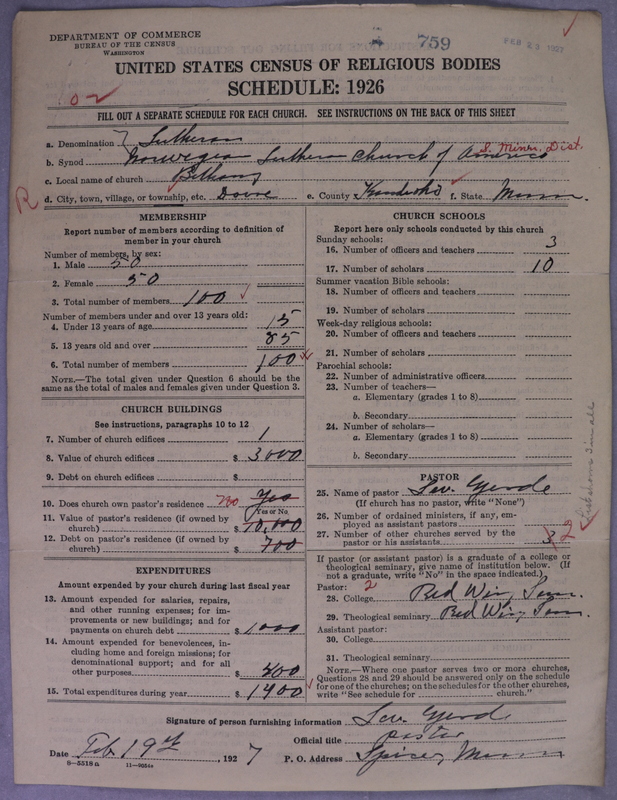 DEPARTMENT OF COMMERCE
BUREAU OF THE CENSUS
WASHINGTON
4
759
FEB 23 1927
UNITED STATES CENSUS OF RELIGIOUS BODIES
SCHEDULE: 1926
FILL OUT A SEPARATE SCHEDULE FOR EACH CHURCH. SEE INSTRUCTIONS ON THE BACK OF THIS SHEET
a. Denomination Lutheran
b. Synod Norwegian Lutheran Church of America S. Minn. Dist.
c. Local name of church Bethany
d. City, town, village, or township, etc. Dovre e. County Kandiyohi f. State Minn.
R
MEMBERSHIP
Report number of members according to definition of
member in your church
Number of members, by sex:
1. Male 50
2. Female 50
3. Total number of members 100
Number of members under and over 13 years old:
4. Under 13 years of age 15
5. 13 years old and over 85
6. Total number of members 100
NOTE.—The total given under Question 6 should be
same as the total of males and females given under Question 3.
CHURCH BUILDINGS
See instructions, paragraphs 10 to 12
7. Number of church edifices 1
8. Value of church edifices $ 3000
9. Debt on church edifices $
10. Does church own pastor's residence no Yes
Yes or No
11. Value of pastor's residence (if owned by
church) $ 10,000
12. Debt on pastor's residence (if owned by
church) $ 700
EXPENDITURES
Amount expended by your church during last fiscal year
13. Amount expended for salaries, repairs,
and other running expenses; for im-
provements or new buildings; and for
payments on church debt $ 1000
14. Amount expended for benevolences, in-
cluding home and foreign missions; for
denominational support; and for all
other purposes $ 400
15. Total expenditures during year $ 1400
CHURCH SCHOOLS
Report here only schools conducted by this church
Sunday schools:
16. Number of officers and teachers 3
17. Number of scholars 10
Summer vacation Bible schools:
18. Number of officers and teachers
19. Number of scholars
Week-day religious schools:
20. Number of officers and teachers
21. Number of scholars
Parochial schools:
22. Number of administrative officers
23. Number of teachers—
a. Elementary (grades 1 to 8)
b. Secondary
24. Number of scholars—
a. Elementary (grades 1 to 8)
b. Secondary
PASTOR
25. Name of pastor Lev. Gjerde
(If church has no pastor, write "None")
26. Number of ordained ministers, if any, em-
ployed as assistant pastors
27. Number of other churches served by the
pastor or his assistants 3 2
If pastor (or assistant pastor) is a graduate of a college or
theological seminary, give name of institution below. (If
not a graduate, write "No" in the space indicated.)
Pastor: 2
28. College Red Wing Sem.
29. Theological seminary Red Wing Sem
Assistant pastor:
30. College
31. Theological seminary
NOTE.—Where one pastor serves two or more churches,
Questions 28 and 29 should be answered only on the schedule
for one of the churches; on the schedules for the other churches,
write "See schedule for church."
Signature of person furnishing information Lev. Gjerde
Official title pastor
Date Feb 19th, 1927 P. O. Address Spicer, Minn
8—5518a 11—9054a